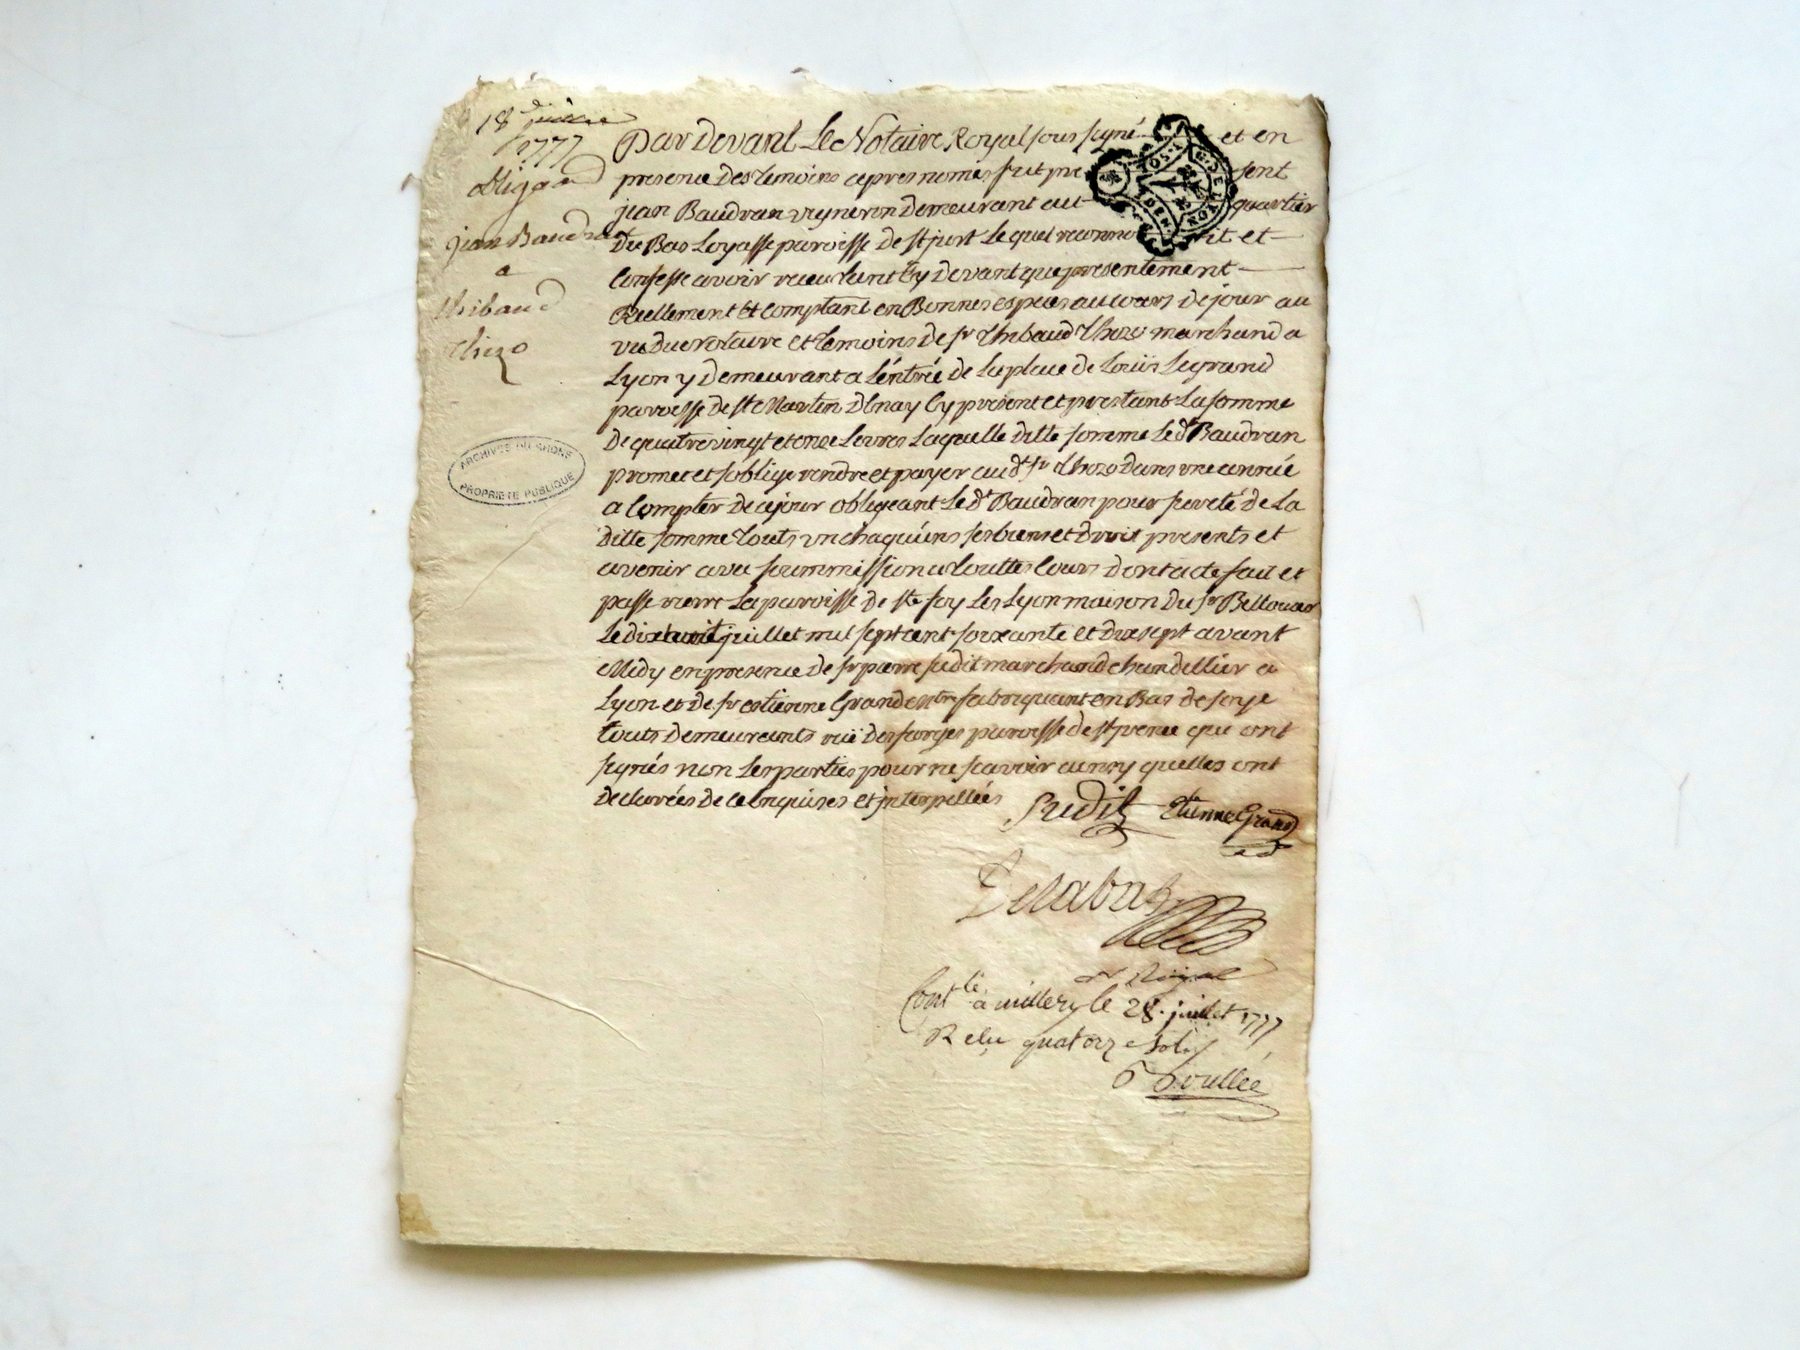 18 juillet
1777
Obligaon
jean Baudran
a
thibaud
Thozo
ARCHIVES DU RHONE
PROPRIETE PUBLIQUE
Par Devant Le Notaire Royal sous signé et en
presence Des temoins cy apres només fut pre sent
jean Baudran vigneron Demeurant au quartier
Du Bas Loyasse paroisse De st just Lequel reconnoit et
Confesse avoir receu tant Cy Devant que presentement
Reellement Et comptant en Bonnes especes au cours De jour au
vu Du notaire et temoins De sr Thibaud Thozo marchand a
Lyon y Demeurant a L'entrée De La place De Loüis Le grand
paroisse De st Martin D'Enay Cy present et prestant La somme
De quatre vingt et onze Livres Laquelle Ditte somme Le dt Baudran
promet et s'oblige rendre et payer au dt sr Thozo Dans une année
a Compter De ce jour obligeant Le dt Baudran pour sureté De La
Ditte somme touts un chaquuns ses biens et Droit presents et
avenir avec soummission a touttes Cours Dont acte fait et
passé riere La paroisse De ste foy Les Lyon maison Du sr Bellouar
Le Dix huit juillet mil sept cent soixante et Dix sept avant
Midy en presence De sr pierre sudit marchand chandellier a
Lyon et De sr estienne Grand mtre fabriquant en Bas De soye
touts Demeurants ruë Des forges paroisse de st nizier qui ont
signés non Les parties pour ne scavoir ainsy quelles ont
Declarées De ce Enquises et interpellées
Sudit Etienne Grand
Delabat
nre Royal
Contlé a millery le 28. juillet 1777
R elu quatorze sols